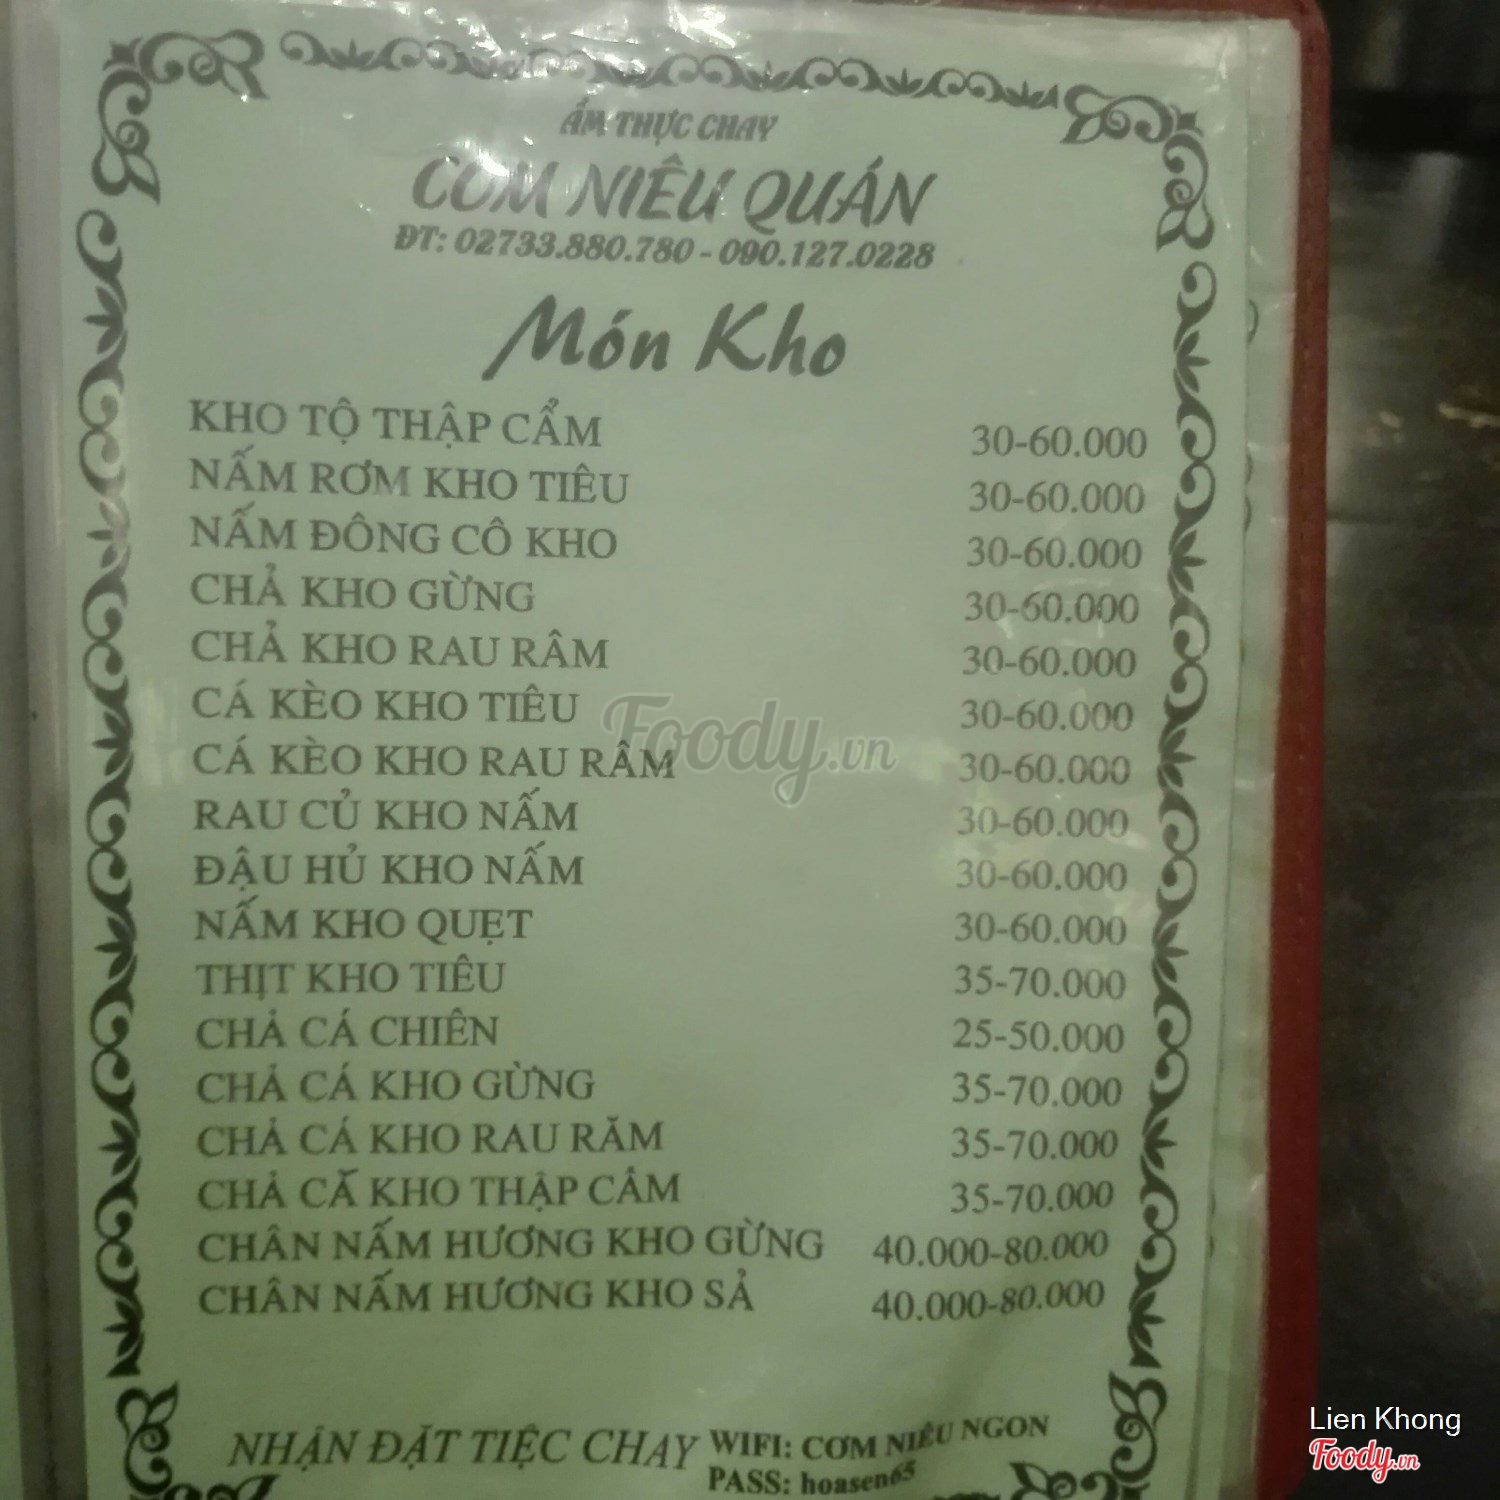 ẨM THỰC CHAY
CƠM NIÊU QUÁN
ĐT: 02733.880.780 - 090.127.0228
Món Kho
KHO TỘ THẬP CẨM 30-60.000
NẤM RƠM KHO TIÊU 30-60.000
NẤM ĐÔNG CÔ KHO 30-60.000
CHẢ KHO GỪNG 30-60.000
CHẢ KHO RAU RÂM 30-60.000
CÁ KÈO KHO TIÊU 30-60.000
CÁ KÈO KHO RAU RÂM 30-60.000
RAU CỦ KHO NẤM 30-60.000
ĐẬU HỦ KHO NẤM 30-60.000
NẤM KHO QUẸT 30-60.000
THỊT KHO TIÊU 35-70.000
CHẢ CÁ CHIÊN 25-50.000
CHẢ CÁ KHO GỪNG 35-70.000
CHẢ CÁ KHO RAU RĂM 35-70.000
CHẢ CĂ KHO THẬP CÂM 35-70.000
CHÂN NẤM HƯƠNG KHO GỪNG 40.000-80.000
CHÂN NẤM HƯƠNG KHO SẢ 40.000-80.000
NHẬN ĐẶT TIỆC CHAY WIFI: CƠM NIÊU NGON
PASS: hoasen65
Foody.vn
Lien Khong
Foody.vn